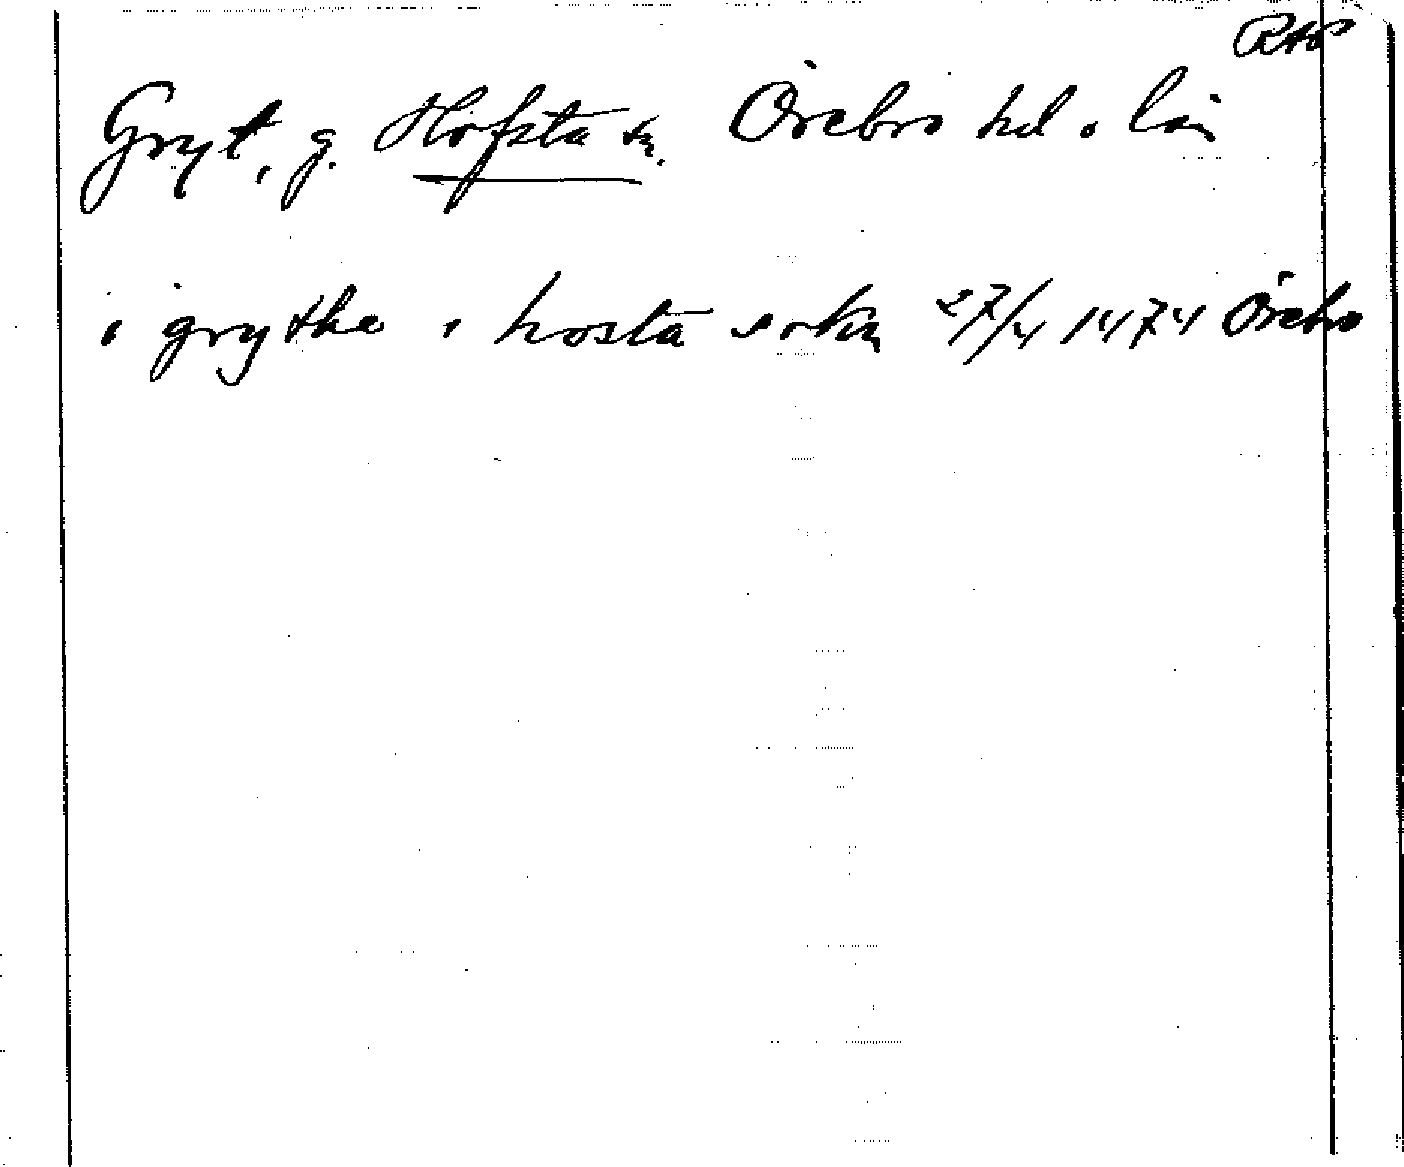 RAP
Gryt, g. Hofsta sn. Örebro hd o. län
i grythe i hosta sokn 27/4 1474 Örebro